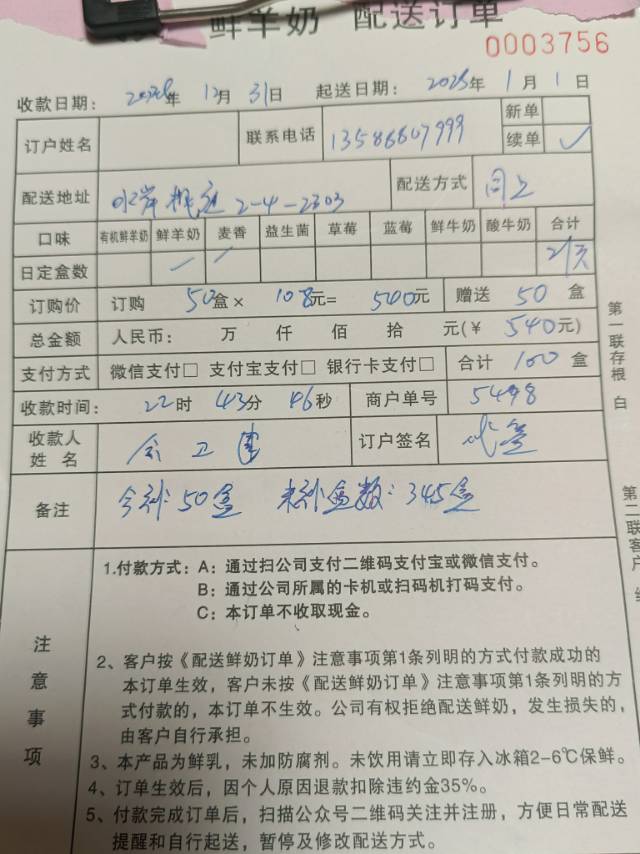 鲜羊奶 配送订单
0003756
收款日期： 年 12月 31日 起送日期： 2025年 1月 1日
订户姓名 联系电话 13586607999 新单
续单 ✓
配送地址 水岸枫 2-4-2303 配送方式 同上
口味 有机鲜羊奶 鲜羊奶 麦香 益生菌 草莓 蓝莓 鲜牛奶 酸牛奶 合计
日定盒数 2/天
订购价 订购 50盒× 10.8元= 元 赠送 50 盒
总金额 人民币： 万 仟 佰 拾 元(￥ 540元)
支付方式 微信支付□ 支付宝支付□ 银行卡支付□ 合计 100 盒
收款时间： 22时 43分 46秒 商户单号 5498
收款人姓名 订户签名
备注 50盒 盒数：345盒
第一联存根 白
第二联客户
注意事项
1.付款方式：A：通过扫公司支付二维码支付宝或微信支付。
B：通过公司所属的卡机或扫码机打码支付。
C：本订单不收取现金。
2、客户按《配送鲜奶订单》注意事项第1条列明的方式付款成功的
本订单生效，客户未按《配送鲜奶订单》注意事项第1条列明的方
式付款的，本订单不生效。公司有权拒绝配送鲜奶，发生损失的，
由客户自行承担。
3、本产品为鲜乳，未加防腐剂。未饮用请立即存入冰箱2-6℃保鲜。
4、订单生效后，因个人原因退款扣除违约金35%。
5、付款完成订单后，扫描公众号二维码关注并注册，方便日常配送
提醒和自行起送，暂停及修改配送方式。